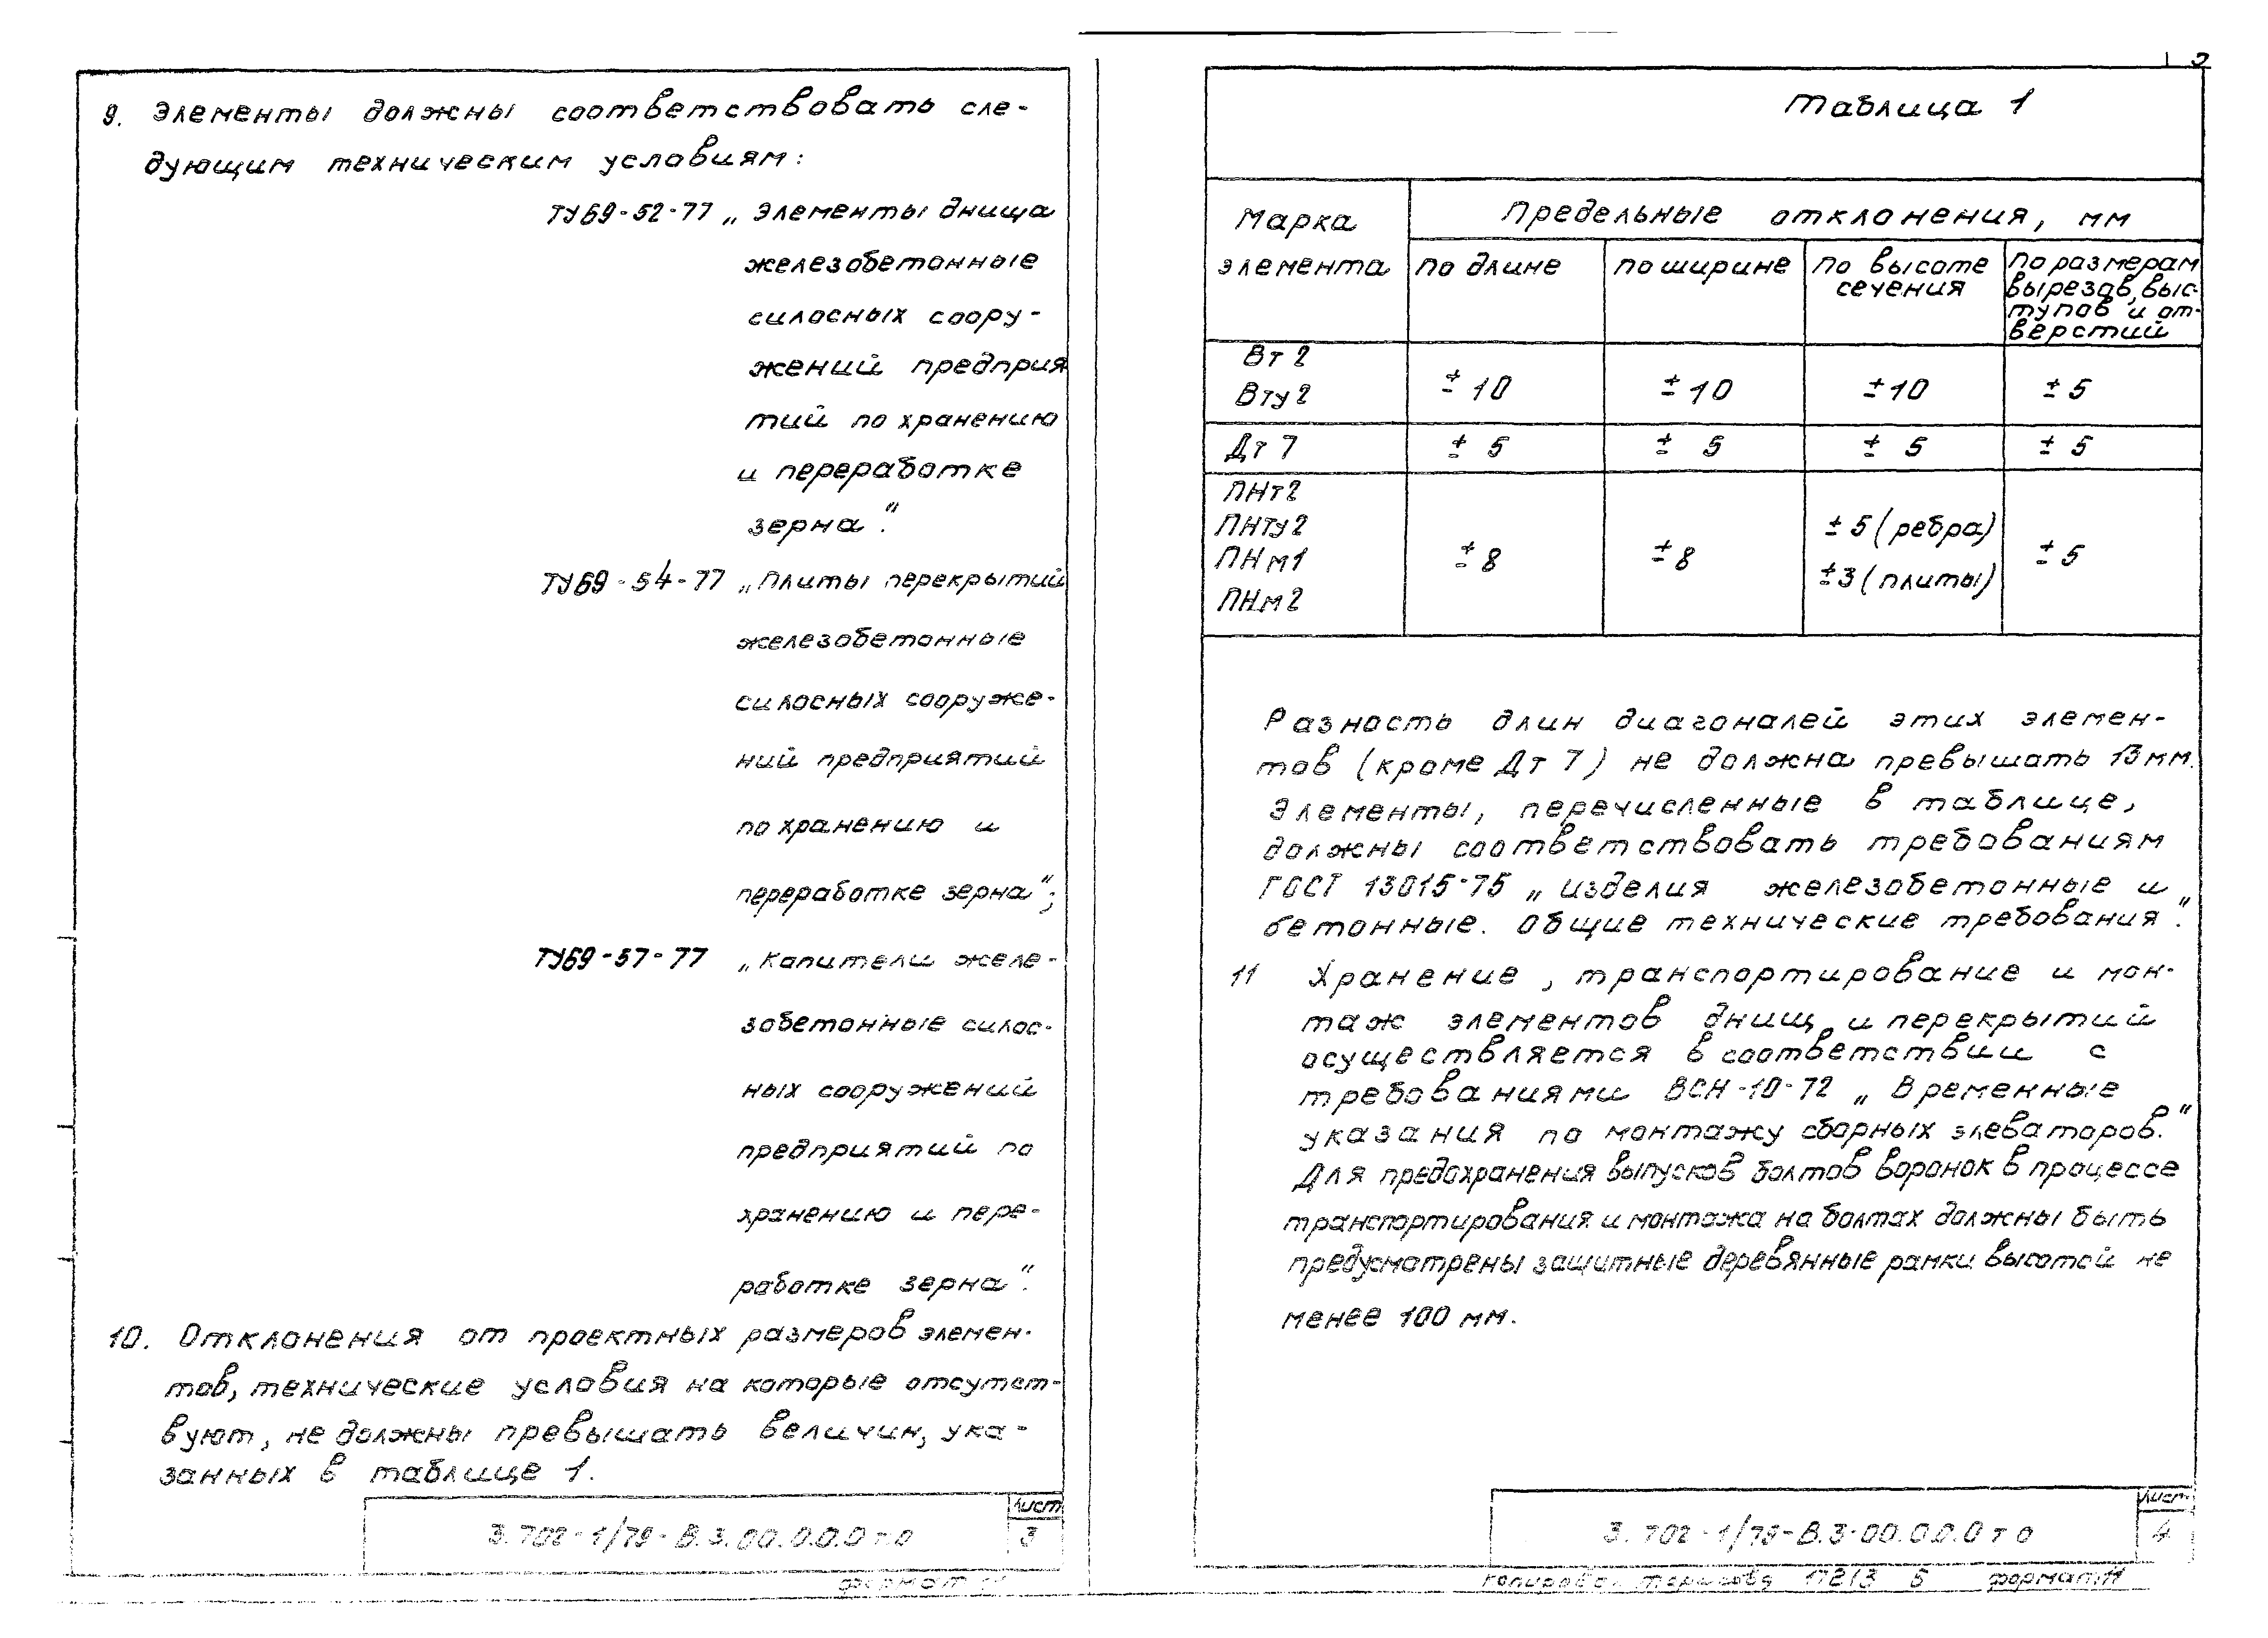 9. Элементы должны соответствовать сле-
дующим техническим условиям:
ТУ69-52-77 „Элементы днища
железобетонные
силосных соору-
жений предприя
тий по хранению
и переработке
зерна".
ТУ69-54-77 „Плиты перекрытий
железобетонные
силосных сооруже-
ний предприятий
по хранению и
переработке зерна";
ТУ69-57-77 „Капители желе-
зобетонные силос-
ных сооружений
предприятий по
хранению и пере-
работке зерна".
10. Отклонения от проектных размеров элемен-
тов, технические условия на которые отсутст-
вуют, не должны превышать величин, ука-
занных в таблице 1.
3.702-1/79-В.3.00.0.0.0 т о
Лист
3
формат 11
Таблица 1
Марка элемента
Предельные отклонения, мм
по длине
по ширине
по высоте
сечения
по размерам
вырезов, выс-
тупов и от-
верстий
Вт 2
Вту 2
± 10
± 10
± 10
± 5
Дт 7
± 5
± 5
± 5
± 5
ПНт2
ПНту2
ПНм1
ПНм2
± 8
± 8
± 5 (ребра)
± 3 (плиты)
± 5
Разность длин диагоналей этих элемен-
тов (кроме Дт 7) не должна превышать 13мм.
Элементы, перечисленные в таблице,
должны соответствовать требованиям
ГОСТ 13015-75 „Изделия железобетонные и
бетонные. Общие технические требования".
11 Хранение, транспортирование и мон-
таж элементов днищ и перекрытий
осуществляется в соответствии с
требованиями ВСН-10-72 „Временные
указания по монтажу сборных элеваторов."
Для предохранения выпусков болтов воронок в процессе
транспортирования и монтажа на болтах должны быть
предусмотрены защитные деревянные рамки высотой не
менее 100 мм.
3.702-1/79-В.3-00.0.0.0 т о
Лист
4
Копировал 17213 5 формат 11